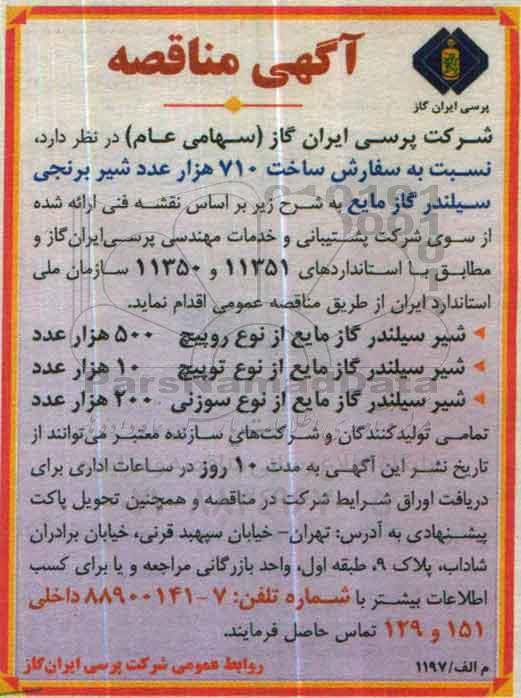 آگهی مناقصه
پرسی ایران گاز
شرکت پرسی ایران گاز (سهامی عام) در نظر دارد،
نسبت به سفارش ساخت ۷۱۰ هزار عدد شیر برنجی
سیلندر گاز مایع به شرح زیر بر اساس نقشه فنی ارائه شده
از سوی شرکت پشتیبانی و خدمات مهندسی پرسی‌ایران‌گاز و
مطابق با استانداردهای ۱۱۳۵۱ و ۱۱۳۵۰ سازمان ملی
استاندارد ایران از طریق مناقصه عمومی اقدام نماید.
شیر سیلندر گاز مایع از نوع روپیچ ۵۰۰ هزار عدد
شیر سیلندر گاز مایع از نوع توپیچ ۱۰ هزار عدد
شیر سیلندر گاز مایع از نوع سوزنی ۲۰۰ هزار عدد
تمامی تولیدکنندگان و شرکت‌های سازنده معتبر می‌توانند از
تاریخ نشر این آگهی به مدت ۱۰ روز در ساعات اداری برای
دریافت اوراق شرایط شرکت در مناقصه و همچنین تحویل پاکت
پیشنهادی به آدرس: تهران- خیابان سپهبد قرنی، خیابان برادران
شاداب، پلاک ۹، طبقه اول، واحد بازرگانی مراجعه و یا برای کسب
اطلاعات بیشتر با شماره تلفن: ۷-۸۸۹۰۰۱۴۱ داخلی
۱۵۱ و ۱۲۹ تماس حاصل فرمایند.
م الف/۱۱۹۷ روابط عمومی شرکت پرسی ایران‌گاز
ParsNamadData